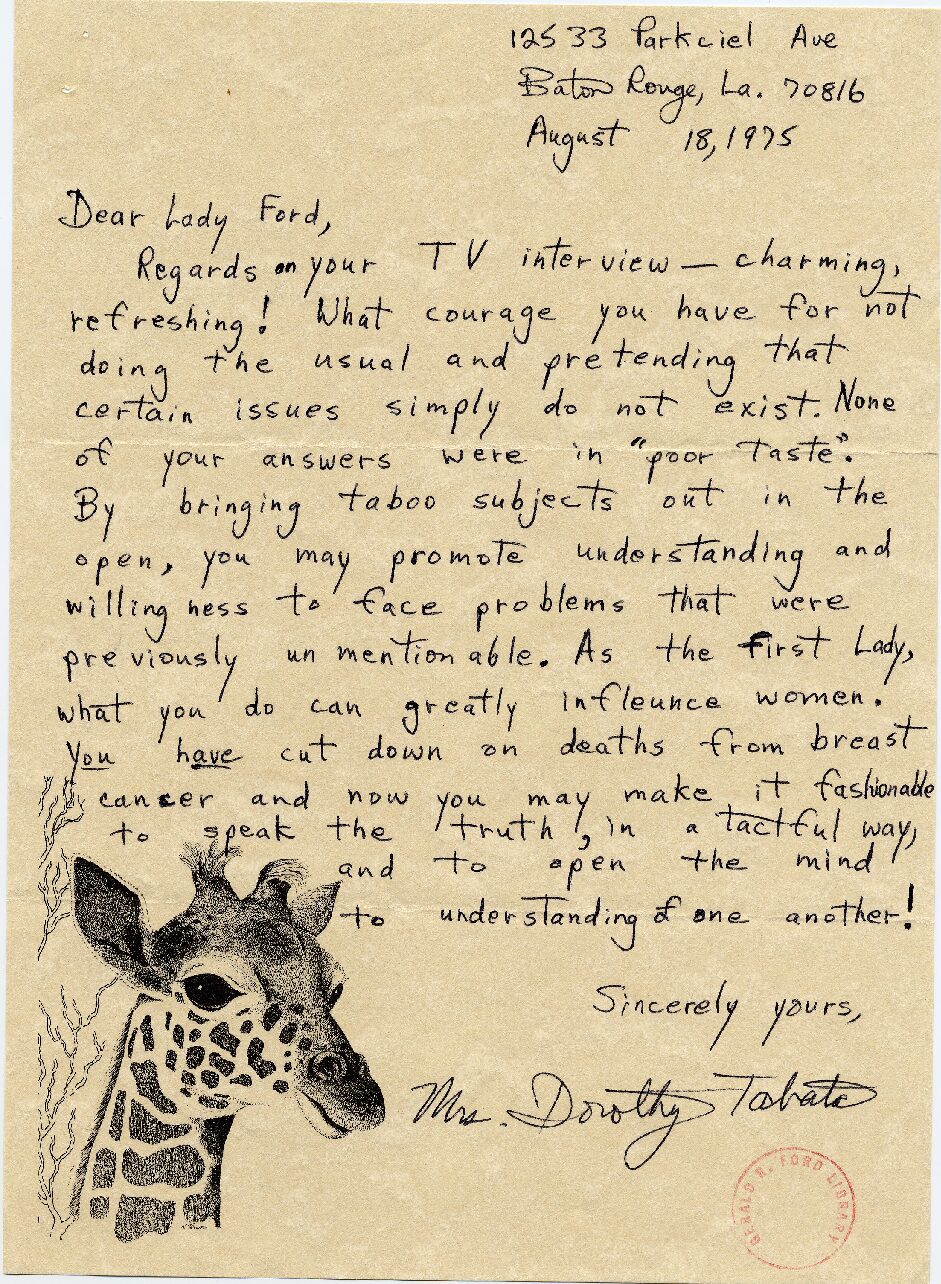 12533 Parkciel Ave
Baton Rouge, La. 70816
August 18, 1975
Dear Lady Ford,
Regards on your TV interview — charming,
refreshing! What courage you have for not
doing the usual and pretending that
certain issues simply do not exist. None
of your answers were in "poor taste".
By bringing taboo subjects out in the
open, you may promote understanding and
willingness to face problems that were
previously unmentionable. As the First Lady,
what you do can greatly infleunce women.
You have cut down on deaths from breast
cancer and now you may make it fashionable
to speak the truth, in a tactful way,
and to open the mind
to understanding of one another!
Sincerely yours,
Mrs. Dorothy Tabata
GERALD R. FORD LIBRARY